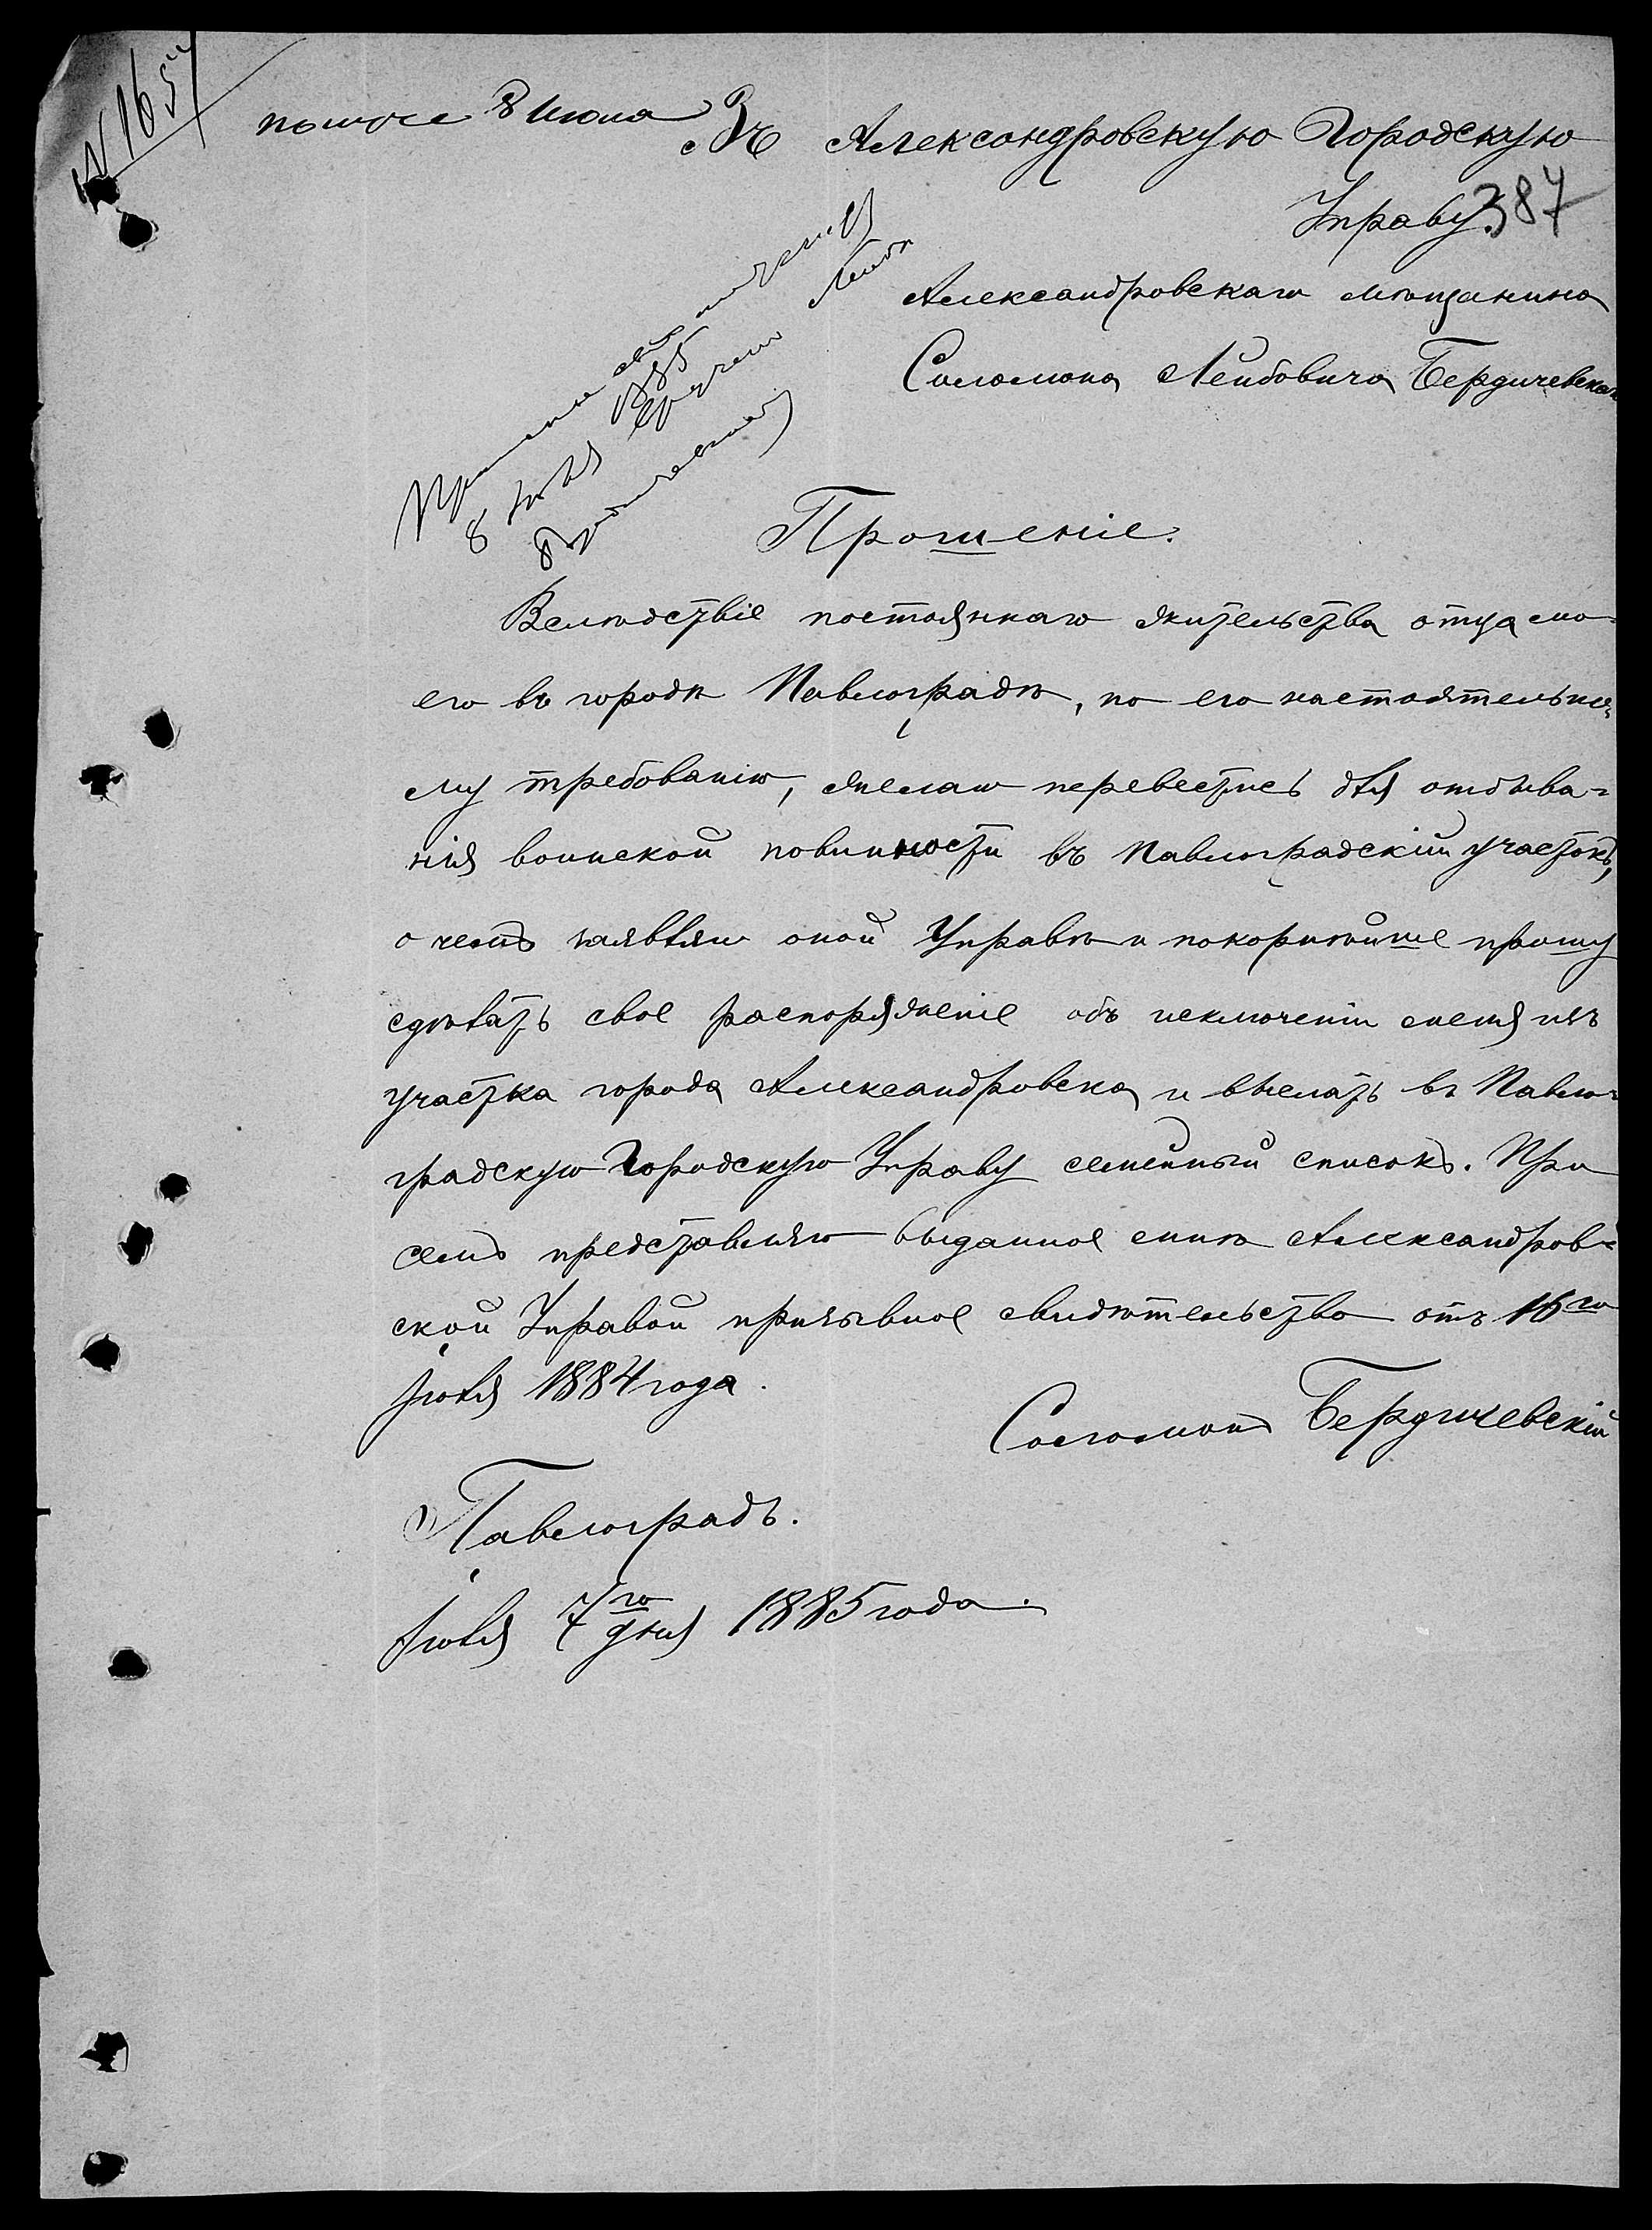 N 1657
8 Июля
Въ Александровскую Городскую
Управу.
387
Александровскаго мѣщанина
Соломона Лейбовича Бердичевскаго
8 Іюля 1885
Прошеніе.
Вслѣдствіе постояннаго жительства отца мо-
его въ городѣ Павлоградѣ, по его настоятельно-
му требованію, желаю перевестись для отбыва-
нія воинской повинности въ Павлоградскій участокъ,
о чемъ заявляю оной Управѣ и покорнѣйше прошу
сдѣлать свое распоряженіе объ исключеніи меня изъ
участка города Александровска и выслать въ Павло-
градскую Городскую Управу семейный списокъ. При
семъ представляю выданное мнѣ Александров-
ской Управой призывное свидѣтельство отъ 16го
Іюля 1884 года.
Соломонъ Бердичевскій
Павлоградъ.
Іюля 7го дня 1885 года.